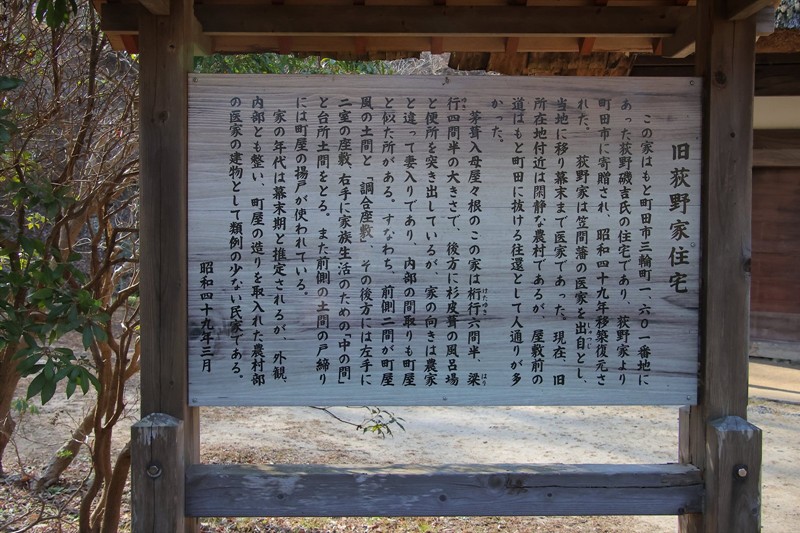 旧荻野家住宅
この家はもと町田市三輪町一、六〇一番地に
あった荻野磯吉氏の住宅であり、荻野家より
町田市に寄贈され、昭和四十九年移築復元さ
れた。　荻野家は笠間藩の医家を出自とし、
当地に移り幕末まで医家であった。現在、旧
所在地付近は閑静な農村であるが、屋敷前の
道はもと町田に抜ける往還として人通りが多
かった。
茅葺入母屋々根のこの家は桁行六間半、梁
行四間半の大きさで、後方に杉皮葺の風呂場
と便所を突き出しているが、家の向きは農家
と違って妻入りであり、内部の間取りも町屋
と似た所がある。すなわち、前側二間が町屋
風の土間と「調合座敷」、その後方には左手に
二室の座敷、右手に家族生活のための「中の間」
と台所土間をとる。また前側の土間の戸締り
には町屋の揚戸が使われている。
家の年代は幕末期と推定されるが、外観、
内部とも整い、町屋の造りを取入れた農村部
の医家の建物として類例の少ない民家である。
昭和四十九年三月